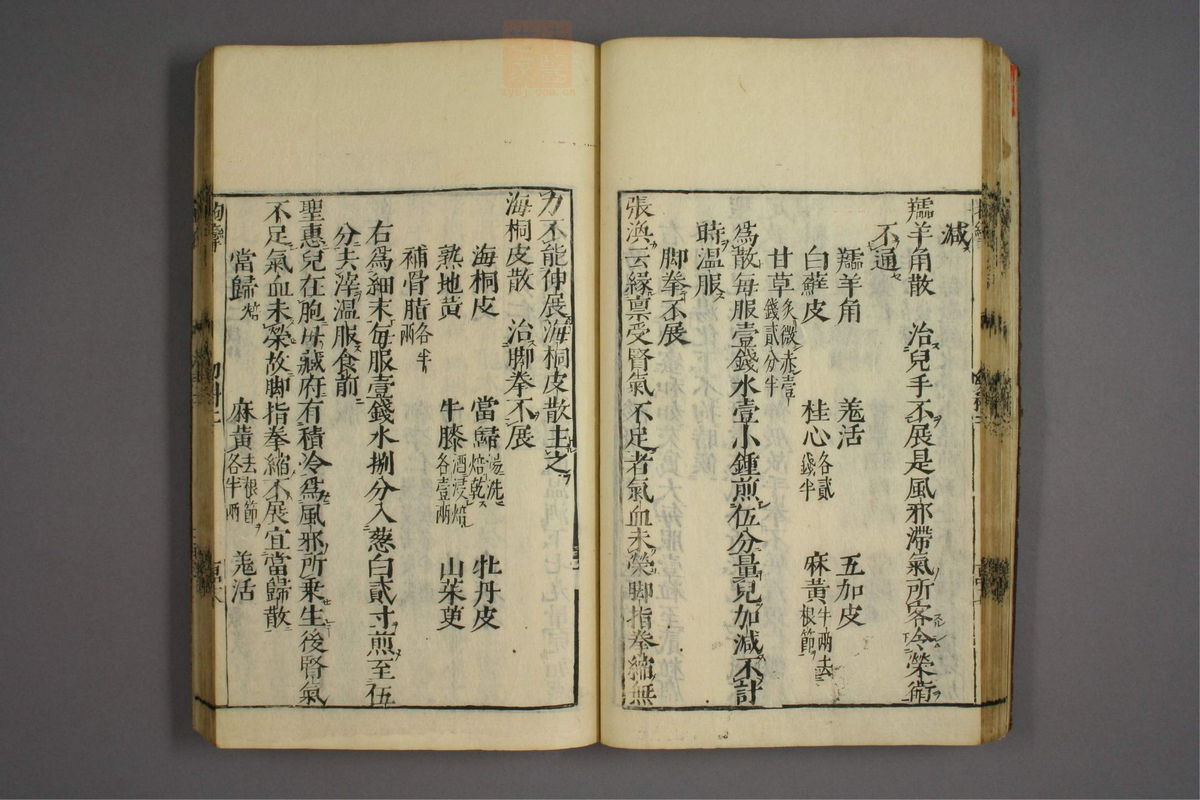 減
羸羊角散　治兒手不展是風邪滯氣所客令榮衛
不通
羸羊角　羗活　五加皮
白蘚皮　桂心各貳錢半　麻黃半兩去根節
甘草炙微赤壹錢貳分半
爲散每服壹錢水壹小鍾煎伍分量兒加減不計
時溫服
脚拳不展
張渙云緣禀受腎氣不足者氣血未榮脚指拳縮無
力不能伸展海桐皮散主之
海桐皮散　治脚拳不展
海桐皮　當歸湯洗焙乾　牡丹皮
熟地黃　牛膝酒浸焙各壹兩　山茱萸
補骨脂各半兩
右爲細末每服壹錢水捌分入葱白貳寸煎至伍
分去滓溫服食前
聖惠兒在胞母藏府有積冷爲風邪所乘生後腎氣
不足氣血未榮故脚指拳縮不展宜當歸散
當歸焙　麻黃去根節各半兩　羗活